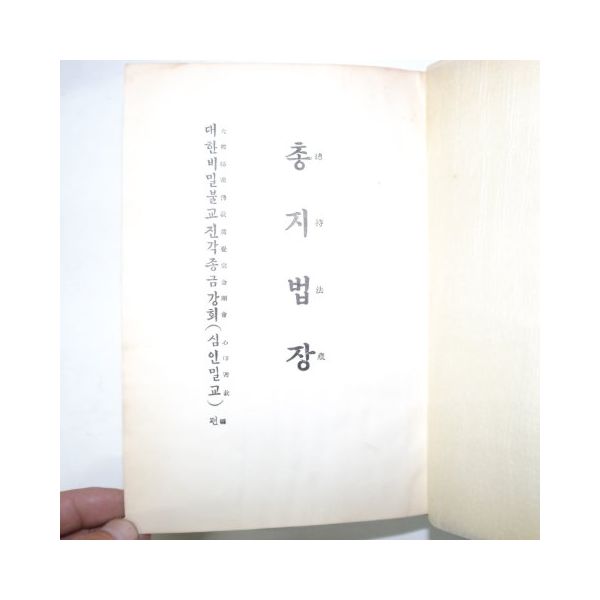 총지법장
總持法藏
대한비밀불교진각종금강회(심인밀교) 편